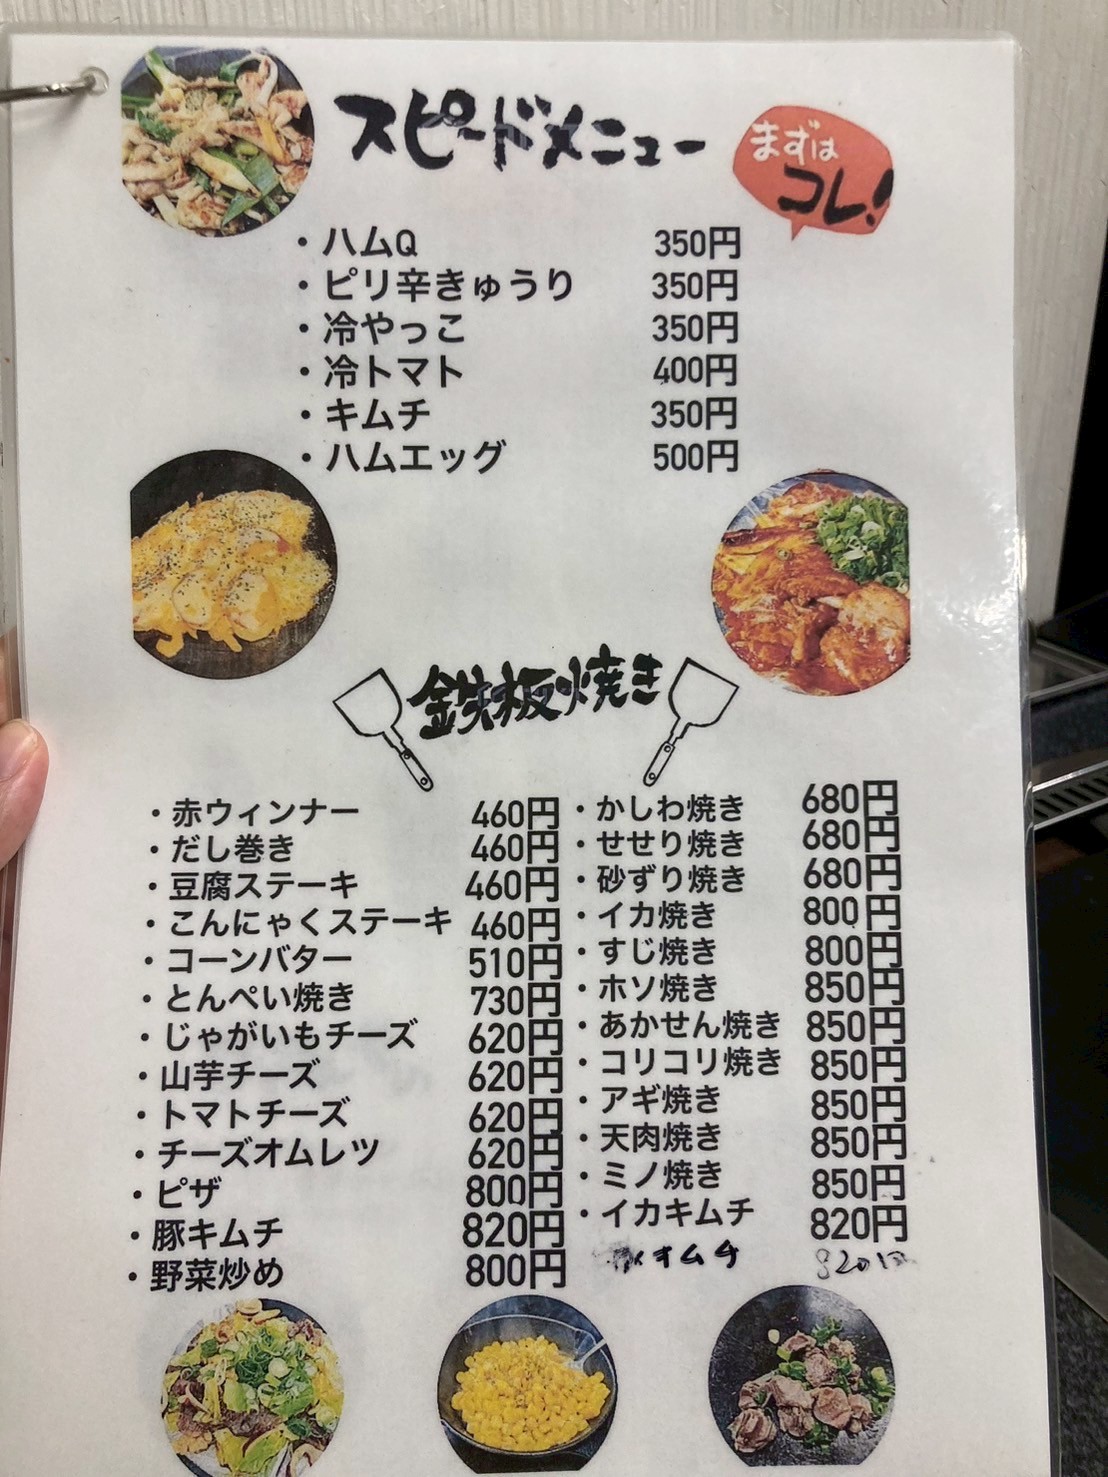 スピードメニュー
まずは
コレ!
・ハムQ 350円
・ピリ辛きゅうり 350円
・冷やっこ 350円
・冷トマト 400円
・キムチ 350円
・ハムエッグ 500円
鉄板焼き
・赤ウィンナー 460円
・だし巻き 460円
・豆腐ステーキ 460円
・こんにゃくステーキ 460円
・コーンバター 510円
・とんぺい焼き 730円
・じゃがいもチーズ 620円
・山芋チーズ 620円
・トマトチーズ 620円
・チーズオムレツ 620円
・ピザ 800円
・豚キムチ 820円
・野菜炒め 800円
・かしわ焼き 680円
・せせり焼き 680円
・砂ずり焼き 680円
・イカ焼き 800円
・すじ焼き 800円
・ホソ焼き 850円
・あかせん焼き 850円
・コリコリ焼き 850円
・アギ焼き 850円
・天肉焼き 850円
・ミノ焼き 850円
・イカキムチ 820円
キムチ 820円